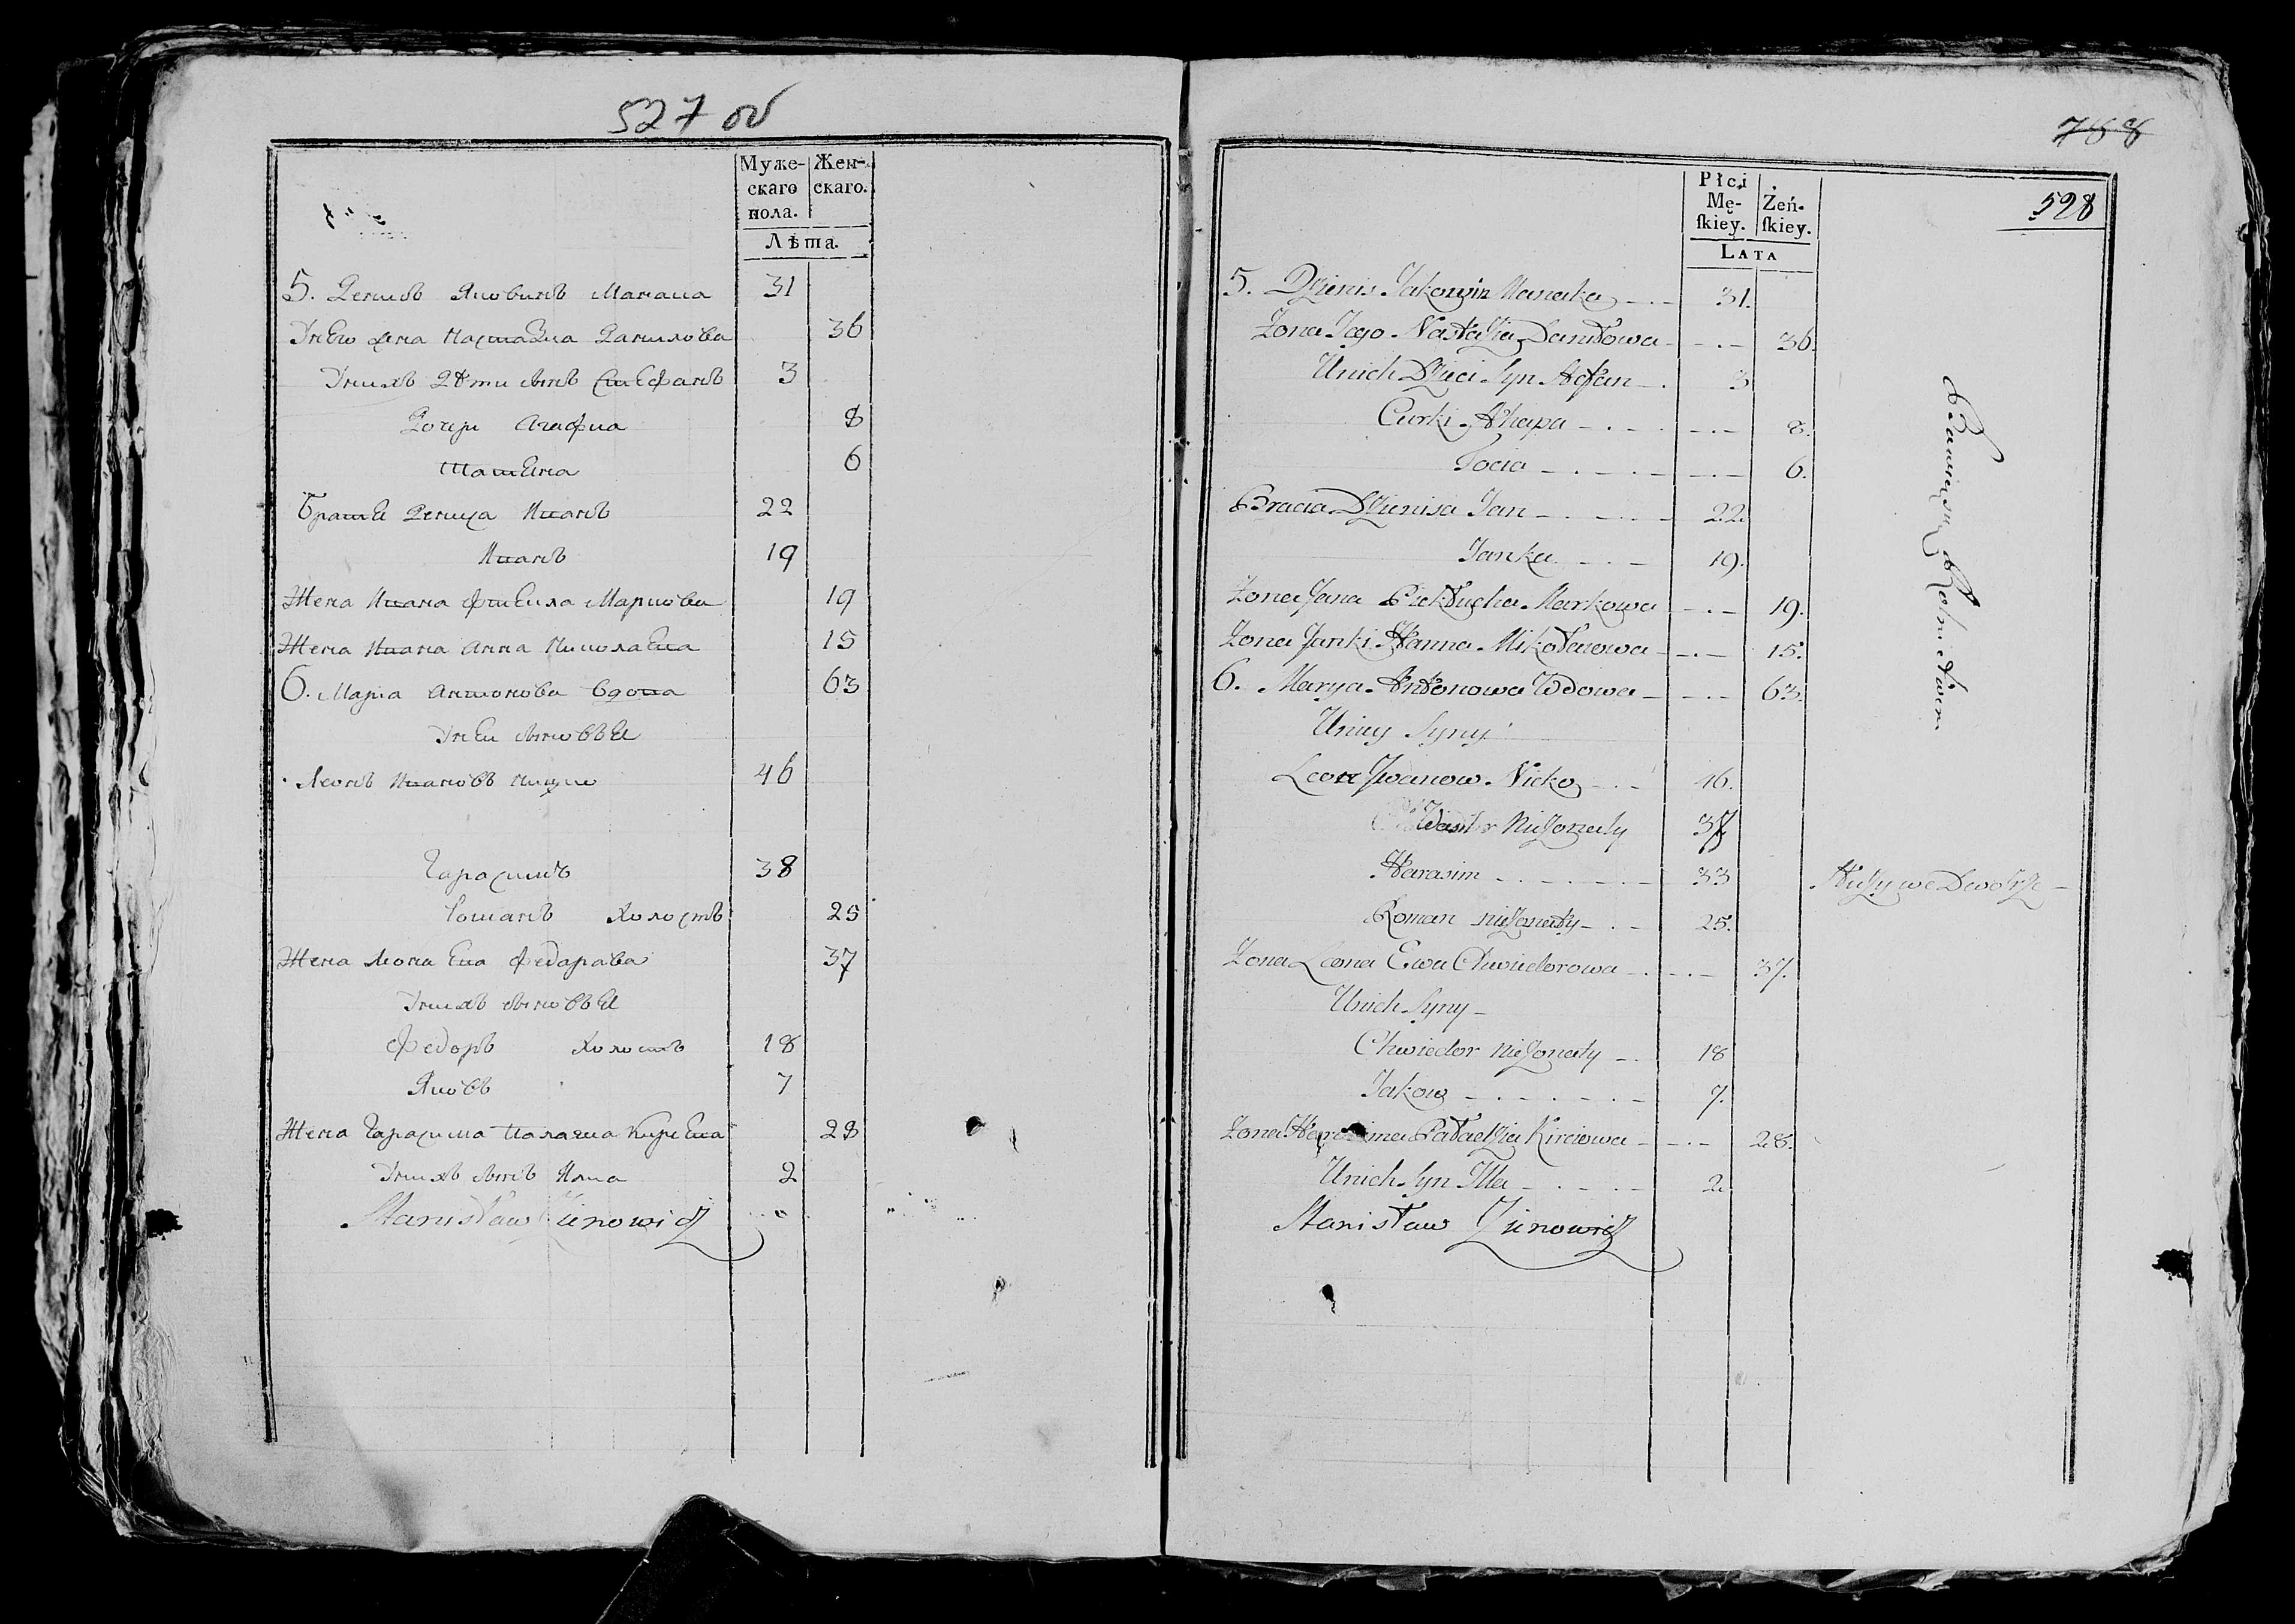 527 об
Муже-
скаго
пола.
Жен-
скаго.
Лѣта.
5. Денисъ Яковинъ Манака 31
Унево жена Настазиа Данилова 36
Унихъ Дѣти Сынъ Стефанъ 3
Дочери Агафиа 8
Татьяна 6
Братьи Дениса Иванъ 22
Иванъ 19
Жена Ивана Фекла Маркова 19
Жена Ивана Анна Николаева 15
6. Мариа Антонова Вдова 63
Унеи Сыновьѣ
Леонъ Ивановъ Ницко 46
Гарасимъ 38
Романъ Холостъ 25
Жена Леона Ева Федарава 37
Унихъ Сыновьѣ
Федоръ Холостъ 18
Яковъ 7
Жена Гарасима Палагиа Кирѣева 28
Унихъ Сынъ Илиа 2
Stanisław Zienowicz
788
528
Płci
Mę-
ſkiey.
Żeń-
ſkiey.
LATA
5. Dzienis Jakowin Manaka 31.
Zona Jego Nastazia Daniłowa 36.
Unich Dzieci Syn Stefan 3
Curki Ahapa 8.
Tocia 6.
Bracia Dzienisa Jan 22
Janka 19.
Zona Jana Markowa 19.
Zona Janki Hanna Mikołaiowa 15.
6. Marya Antonowa Wdowa 63.
Uniey Syny
Leon Jwanow Nicko 46.
Wasil niezonaty
Harasim 33
Roman niezonaty 25.
Zona Leona Ewa Chwiedorowa 37.
Unich Syny
Chwiedor niezonaty 18
Jakow 7.
Zona Harasima Pałazia Kireiowa 28.
Unich Syn Jlla 2
Stanisław Zienowicz
Służy we Dworze